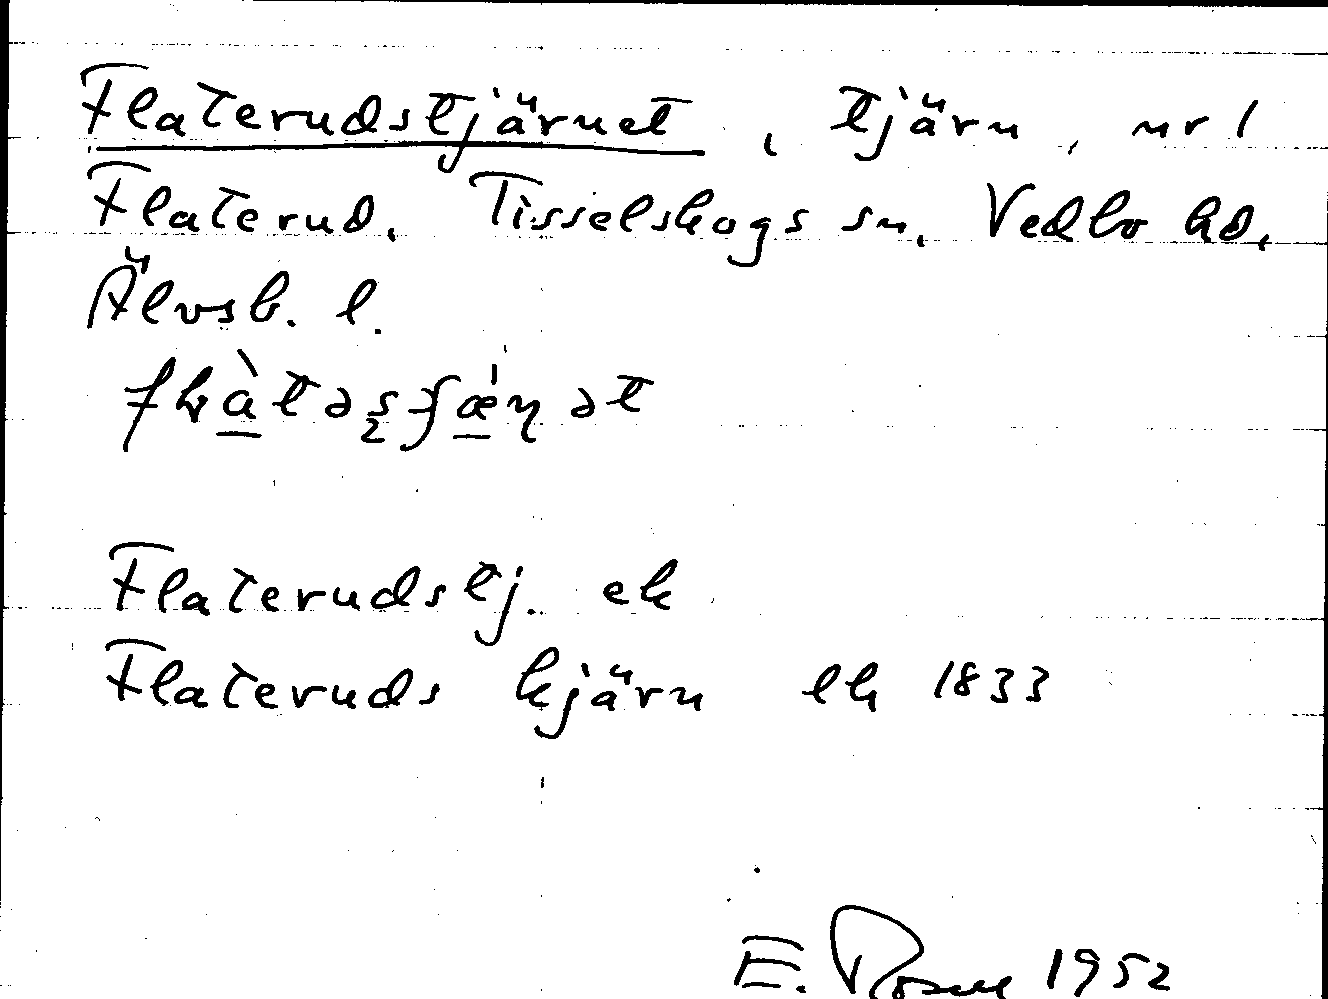 Flaterudstjärnet, tjärn, nr 1
Flaterud, Tisselskogs sn, Vedbo hd,
Älvsb. l.
Flaterudstj. ek
Flateruds kjärn ek 1833
E. Rosell 1952